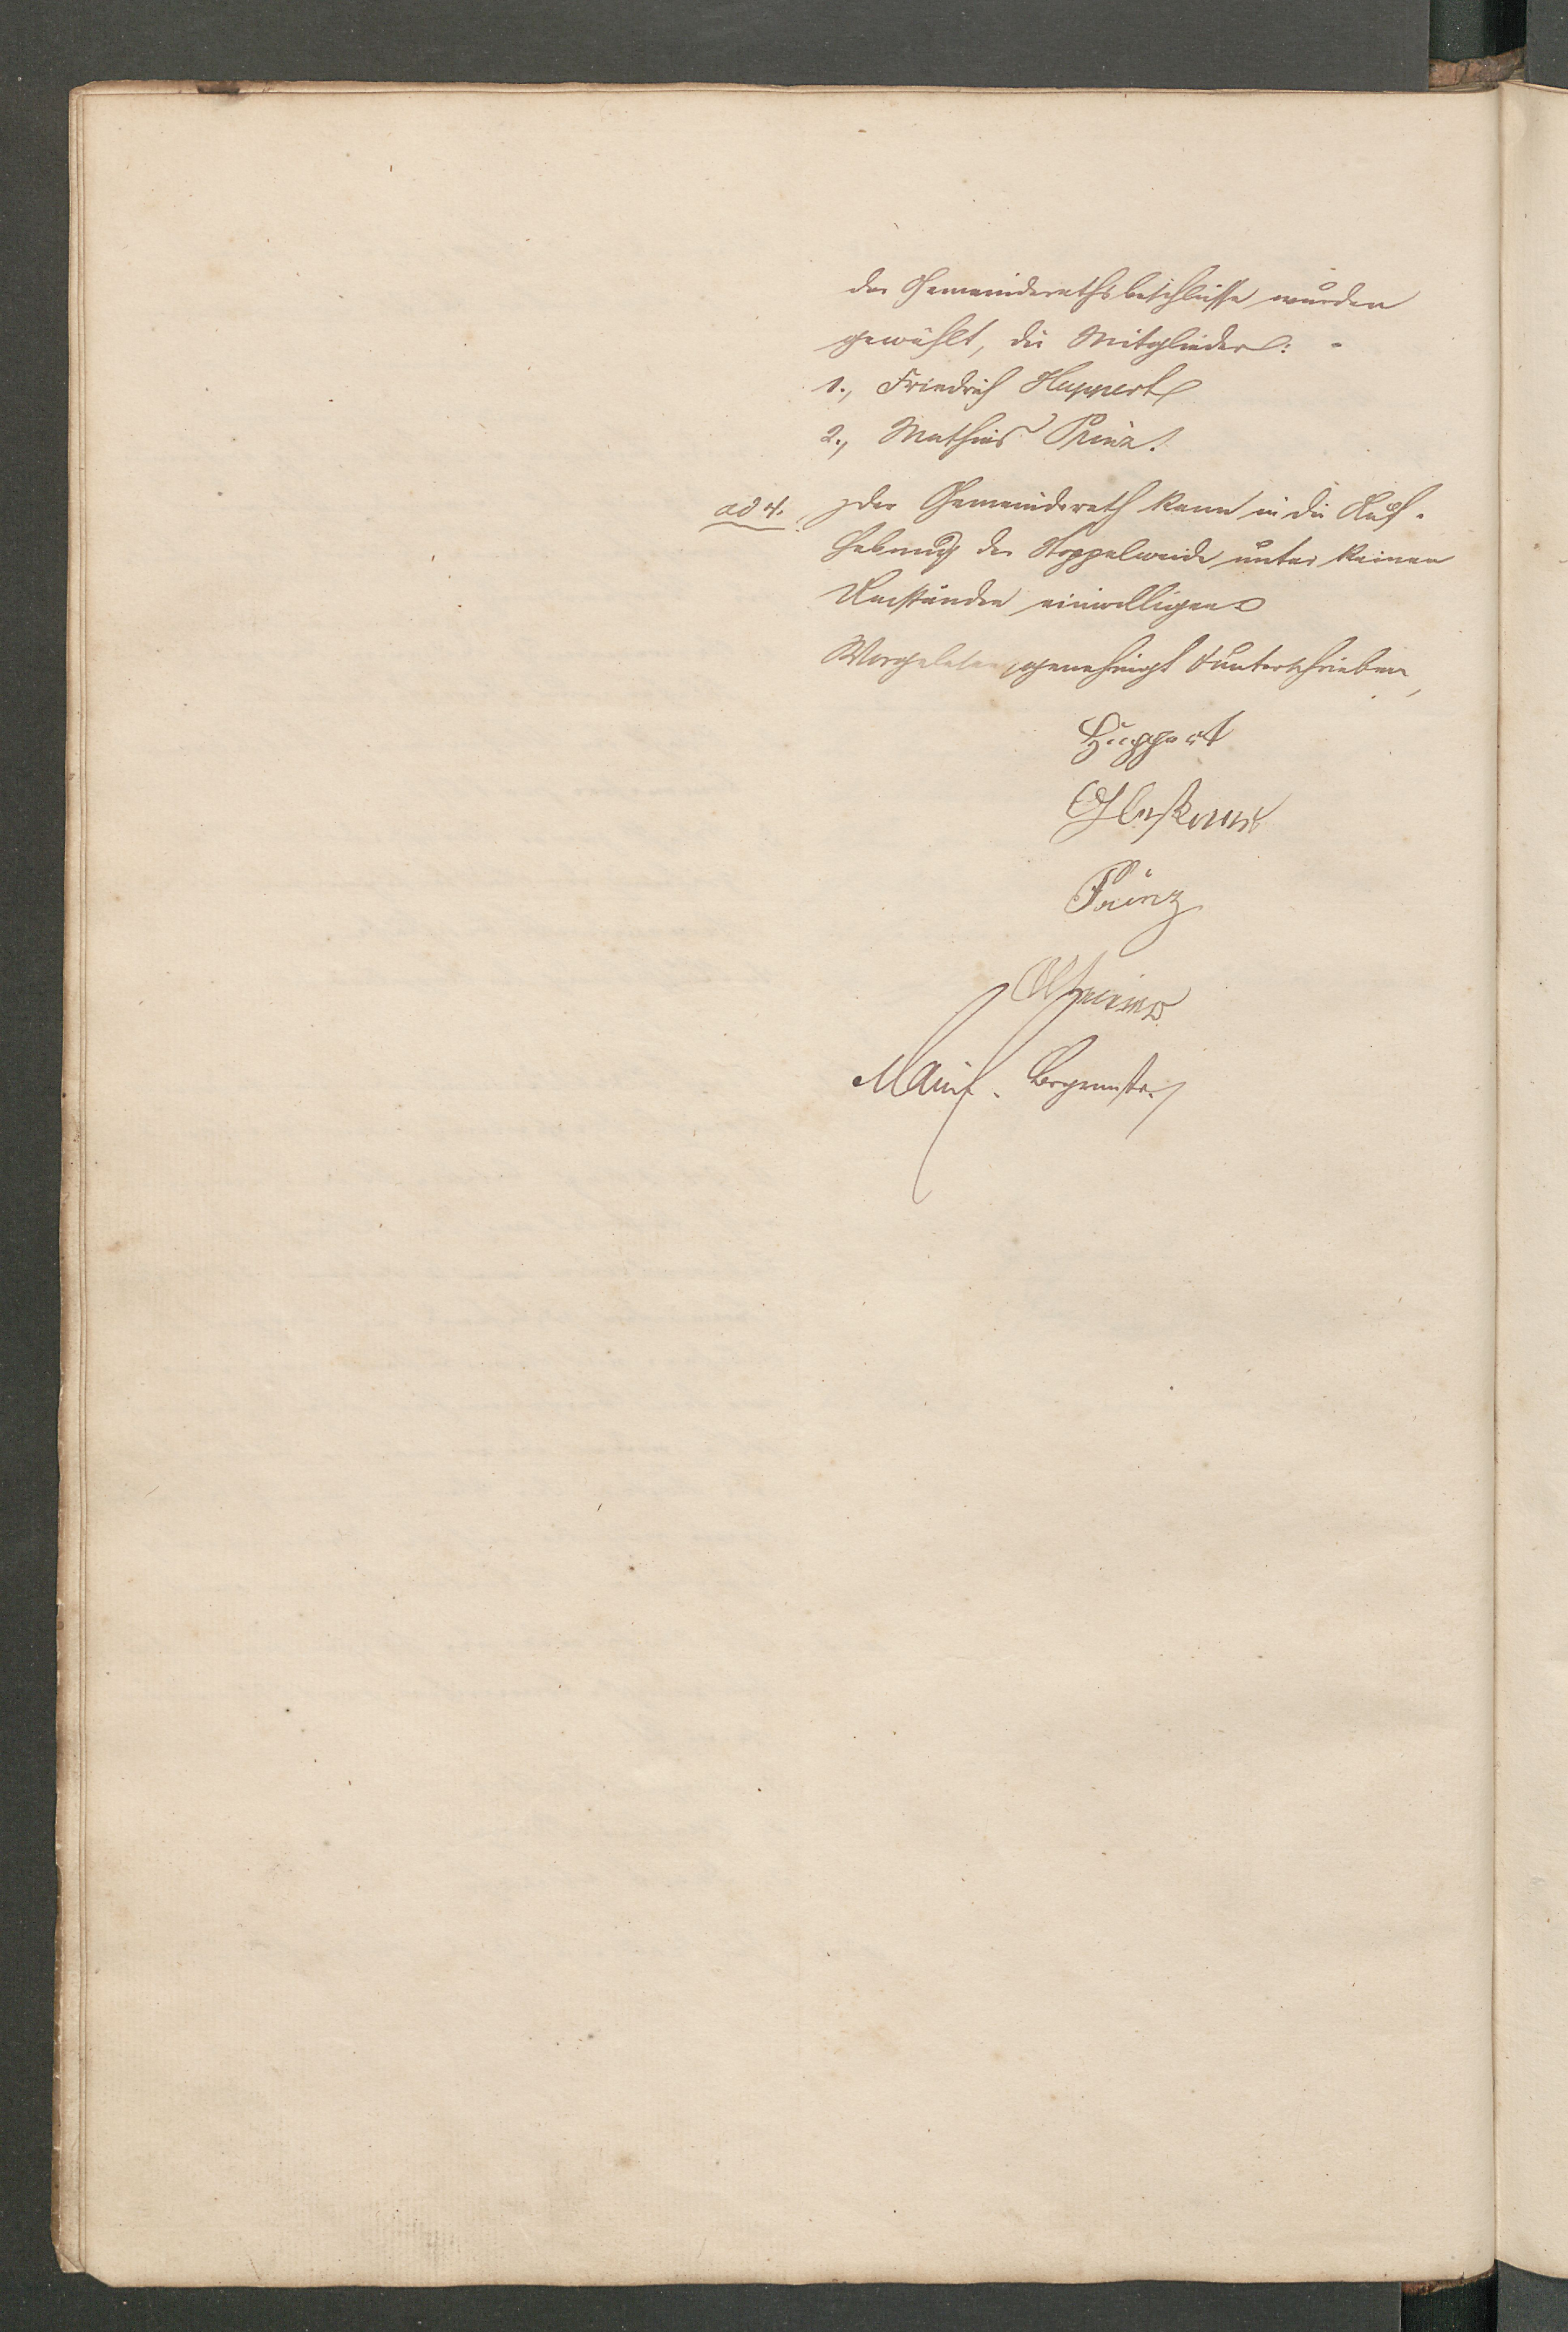 der Gemeinderathsbeschlüsse wurden
gewählt, die Mitglieder: -
1., Friedrich Huppert
2., Mathias Prinz.
ad 4. Der Gemeinderath kann in die Auf-
hebung der Stoppelweide unter keinen
Umständen einwilligen
Vorgelesen, genehmigt & unterschrieben,
Huppert
Prinz